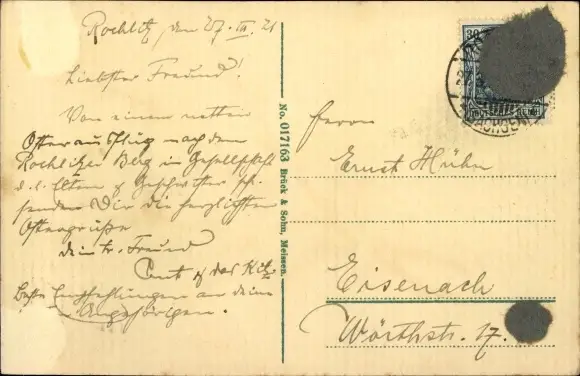 Rochlitz, den 27. III. 21
Liebster Freund!
Von einem netten
Osterausflug nach dem
Rochlitzer Berg in Gesellschaft
d. l. Eltern & Geschwister
senden Dir die herzlichsten
Ostergrüße
dein tr. Freund
Curt & das
Beste Empfehlungen an deine
Angehörigen.
No. 017163 Brück & Sohn, Meissen.
30
SACHSEN
Herrn
Ernst Hühn
Eisenach
Wörthstr. 17.